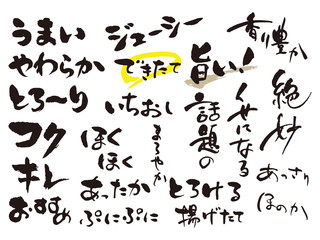 うまい
やわらか
とろ～り
コク
キレ
おすすめ
ジューシー
できたて
いちおし
ほくほく
まろやか
あったか
ぷにぷに
旨い!
話題の
くせになる
とろける
揚げたて
香り豊か
絶妙
あっさり
ほのか